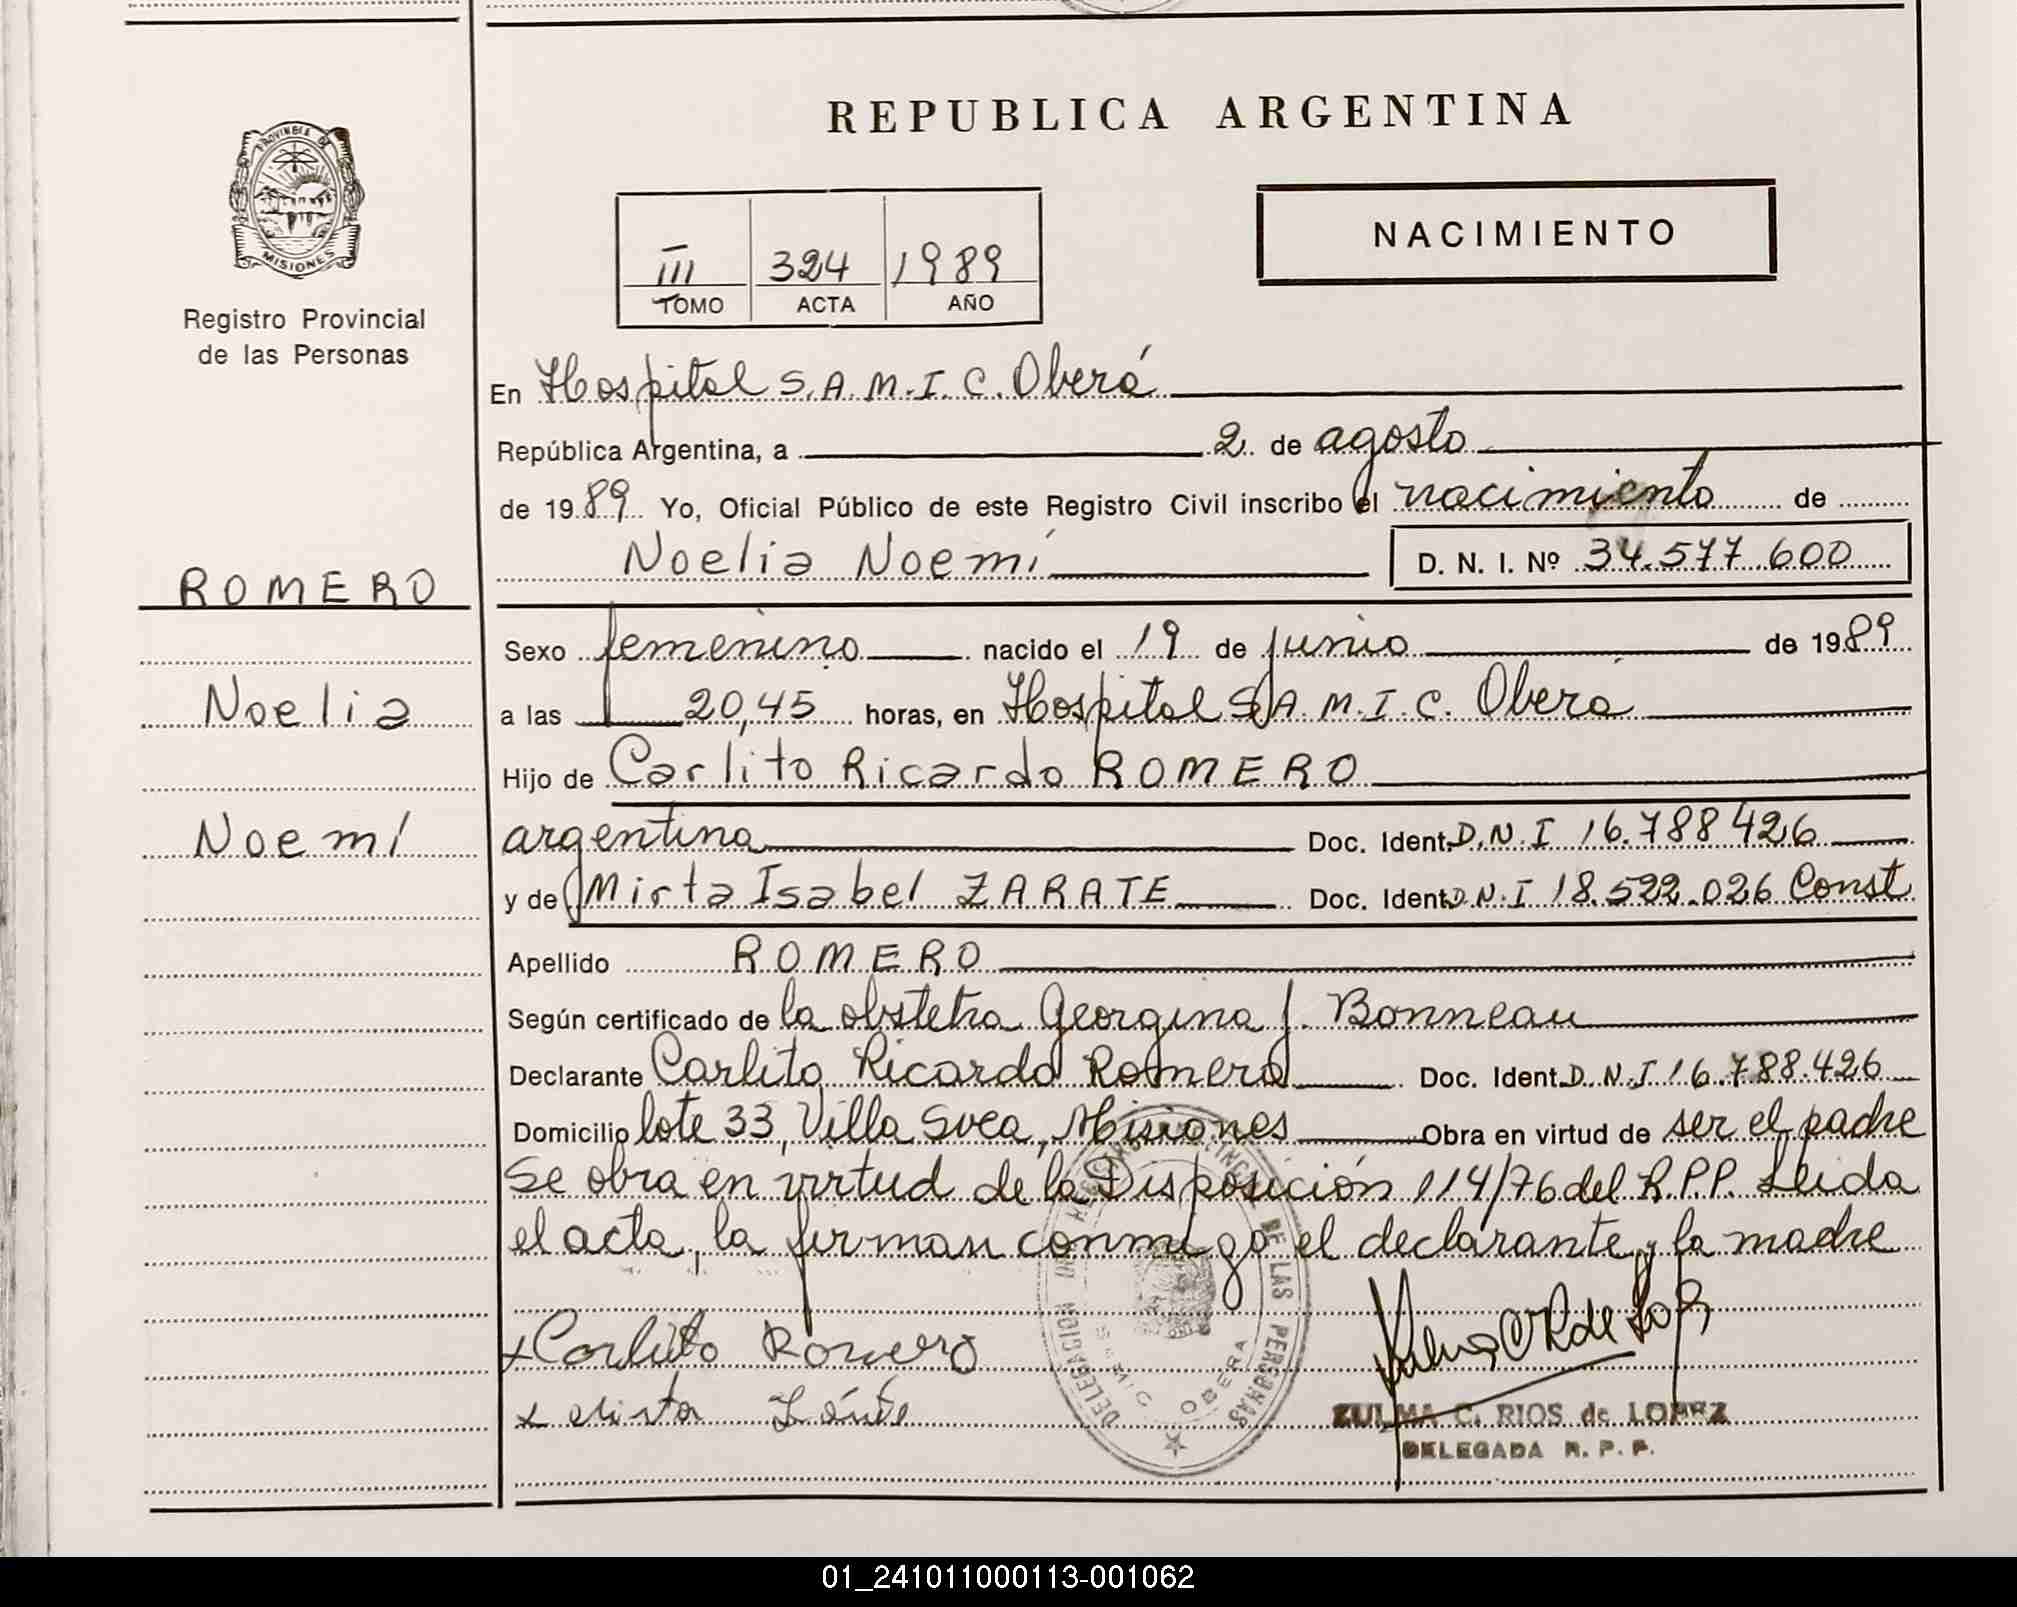 REPUBLICA ARGENTINA
PROVINCIA DE
MISIONES
Registro Provincial
de las Personas
III 324 1989
TOMO ACTA AÑO
NACIMIENTO
En Hospital S.A.M.I.C. Oberá
República Argentina, a 2 de agosto
de 1989 Yo, Oficial Público de este Registro Civil inscribo el nacimiento de
Noelia Noemí D. N. I. Nº 34.577.600
ROMERO
Noelia
Noemí
Sexo femenino nacido el 19 de junio de 1989
a las 20,45 horas, en Hospital S.A.M.I.C. Oberá
Hijo de Carlito Ricardo ROMERO
argentina Doc. Ident. D.N.I 16.788426
y de Mirta Isabel ZARATE Doc. Ident. D.N.I 18.522.026 Const
Apellido ROMERO
Según certificado de la obstetra Georgina J. Bonneau
Declarante Carlito Ricardo Romero Doc. Ident. D.N.I 16.788.426
Domicilio lote 33, Villa Svea, Misiones Obra en virtud de ser el padre
Se obra en virtud de la Disposición 114/76 del R.P.P. Leida
el acta, la firman conmigo el declarante y la madre
x Carlito Romero
x Mirta Zárate
DELEGACION DE LAS PERSONAS
OBERA
ZULMA C. RIOS de LOPEZ
DELEGADA R. P. P.
01_241011000113-001062